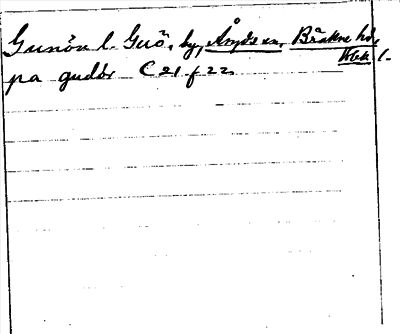 Gunön l. Guö, by, Åryds sn, Bräkne hd,
Blek l.
på gudör C 21 f 22